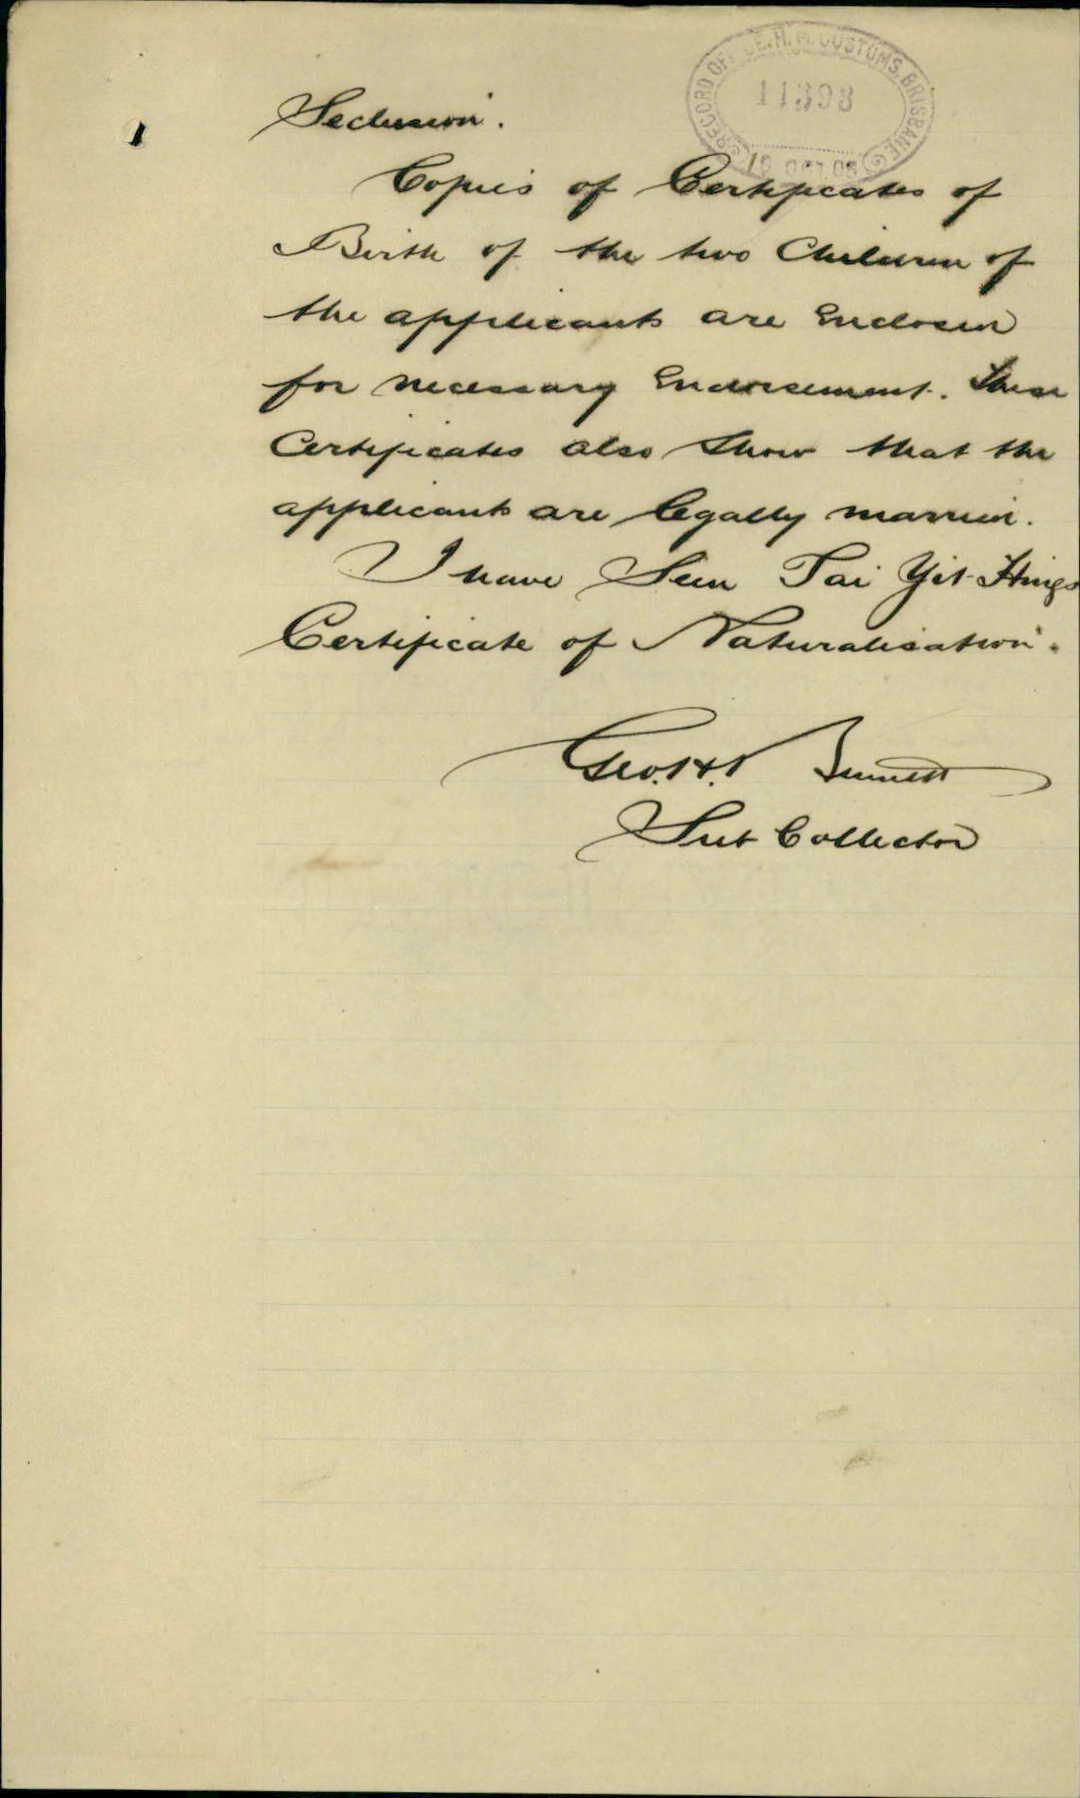 RECORD OFFICE. H.M. CUSTOMS. BRISBANE
11393
Seclusion.
Copies of Certificates of
Birth of the two Children of
the applicants are Enclosed
for necessary Endorsement. These
Certificates also show that the
applicants are legally married.
I have Seen Tai Yit Hings
Certificate of Naturalisation.
Geo. H. Bennett
Sub Collector